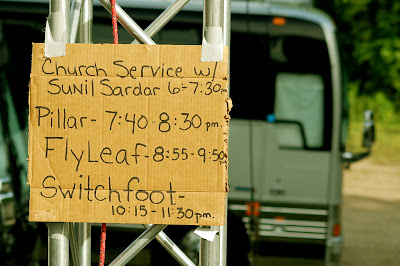 Church Service w/
Sunil Sardar 6-7:30pm
Pillar - 7:40 - 8:30 pm.
FlyLeaf - 8:55 - 9:50
Switchfoot -
10:15 - 11:30 pm.